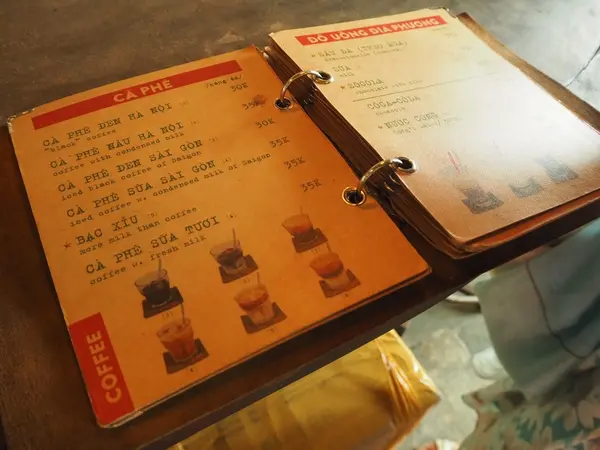 CÀ PHÊ
CÀ PHÊ ĐEN HÀ NỘI 30K
"black" coffee
CÀ PHÊ NÂU HÀ NỘI 35K
coffee with condensed milk
CÀ PHÊ ĐEN SÀI GÒN 30K
iced black coffee of Saigon
CÀ PHÊ SỮA SÀI GÒN 35K
iced coffee w. condensed milk of Saigon
★ BẠC XỈU 35K
more milk than coffee
CÀ PHÊ SỮA TƯƠI
coffee w. fresh milk
COFFEE
ĐỒ UỐNG ĐỊA PHƯƠNG
SỮA
milk
★ SOCOLA
COCA-COLA